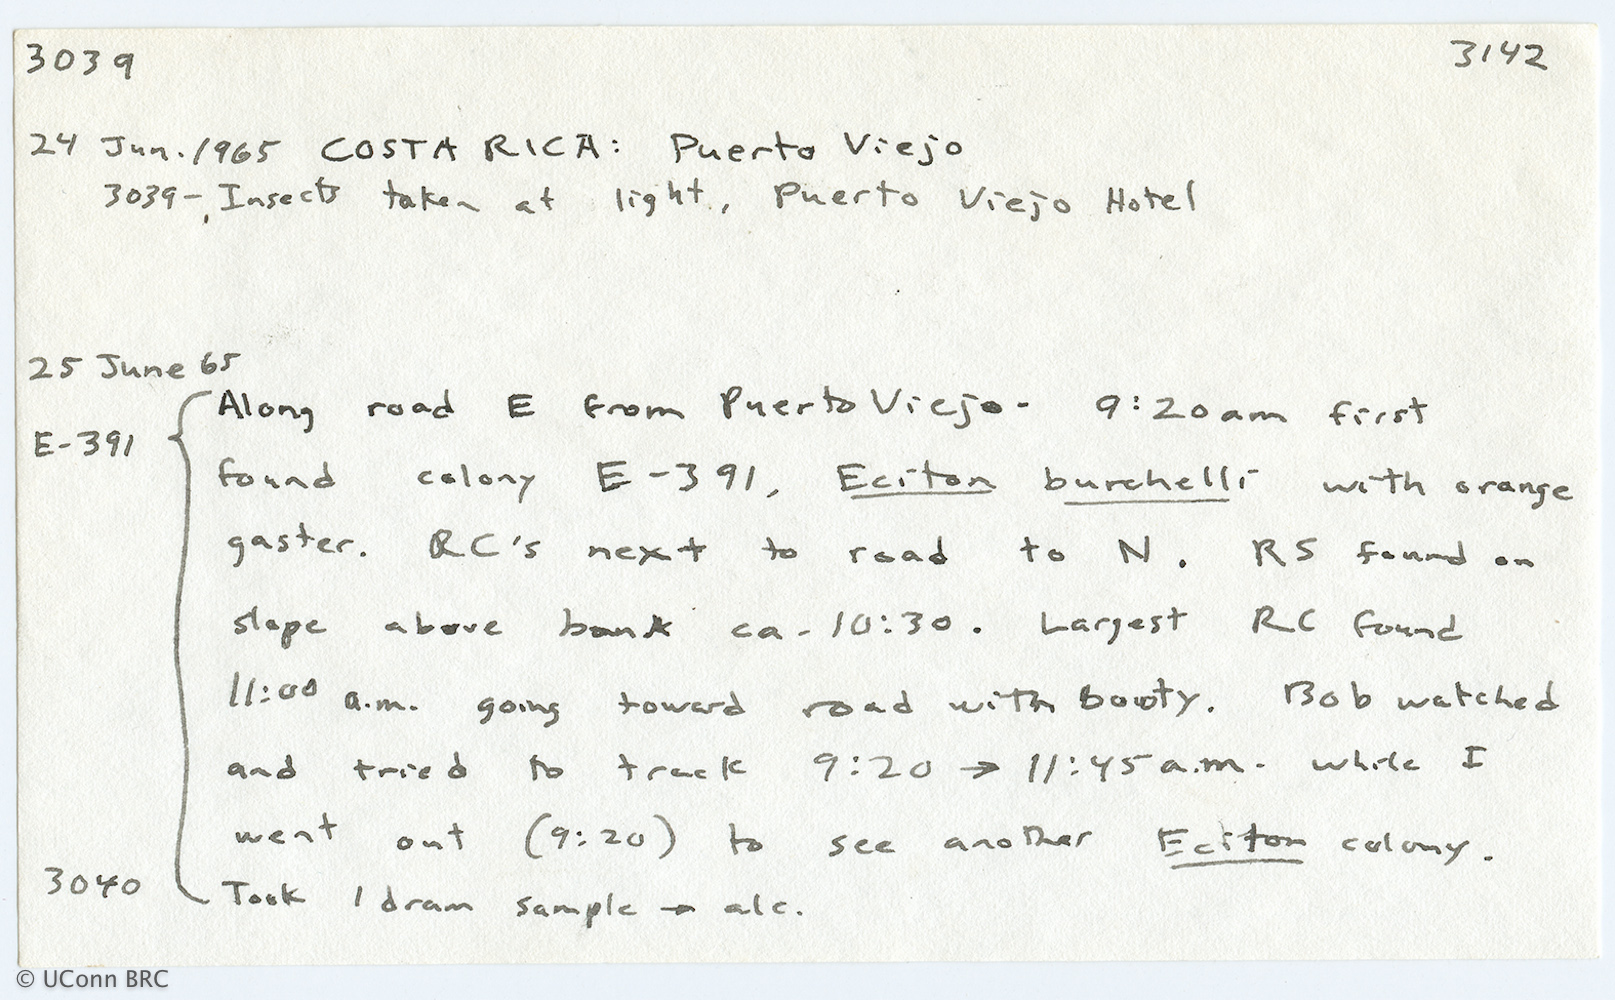 3039 3142
24 Jun. 1965 COSTA RICA: Puerto Viejo
3039-, Insects taken at light, Puerto Viejo Hotel
25 June 65
Along road E from Puerto Viejo - 9:20 am first
E-391 found colony E-391, Eciton burchelli with orange
gaster. RC's next to road to N. RS found on
slope above bank ca. 10:30. Largest RC found
11:00 a.m. going toward road with booty. Bob watched
and tried to track 9:20 → 11:45 a.m. while I
went out (9:20) to see another Eciton colony.
3040 Took 1 dram sample → alc.
© UConn BRC